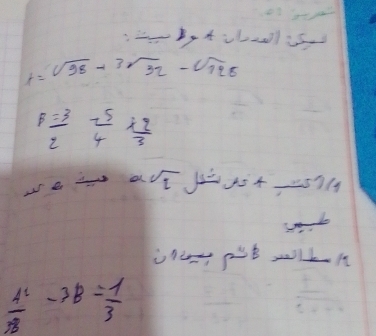 تمرين 01:
ليكن العددان A و B حيث:
A = √98 + 3√32 - √128
B = 3/2 - 5/4 × 2/3
1/ أكتب A على شكل a√2 حيث a عدد
طبيعي
2/ B ثم بين ان
A²/38 - 3B = 1/3